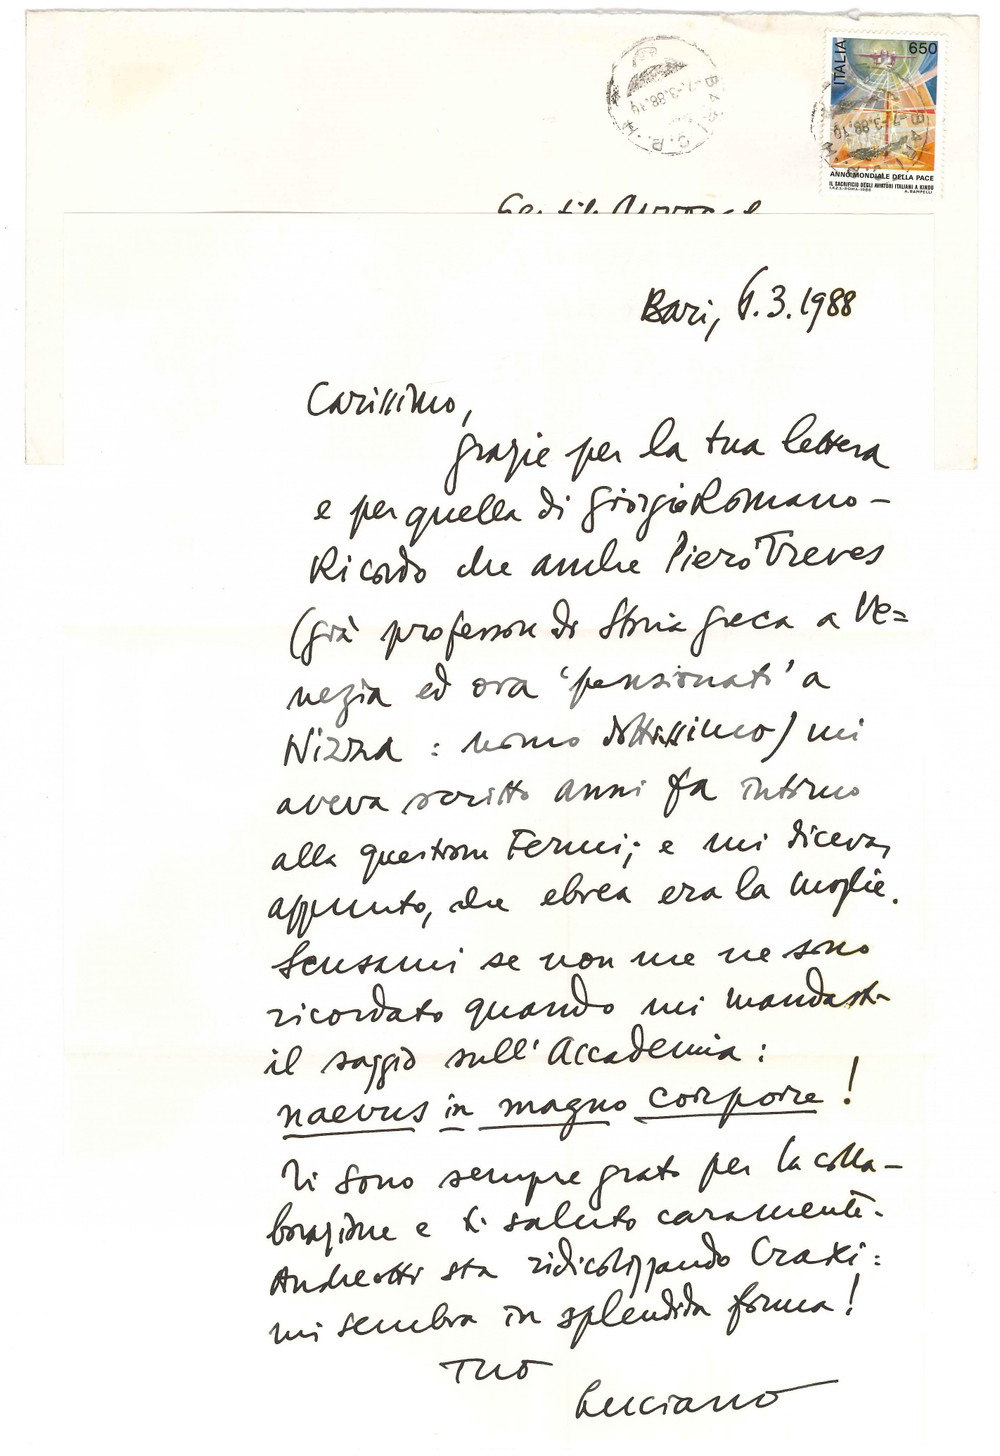 650
ITALIA
BARI C.P.
-7.-3.88.19
ANNO MONDIALE DELLA PACE
IL SACRIFICIO DEGLI AVIATORI ITALIANI A KINDU
Bari, 6.3.1988
Carissimo,
grazie per la tua lettera
e per quella di Giorgio Romano –
Ricordo che anche Piero Treves
(già professore di Storia greca a Ve=
nezia ed ora 'pensionato' a
Nizza : uomo dottissimo) mi
aveva scritto anni fa intorno
alla questione Fermi; e mi diceva,
appunto, che ebrea era la moglie.
Scusami se non me ne sono
ricordato quando mi mandasti
il saggio sull'Accademia :
naevus in magno corpore !
Ti sono sempre grato per la colla–
borazione e ti saluto caramente.
Andreotti sta ridicolizzando Craxi :
mi sembra in splendida forma !
Tuo
Luciano